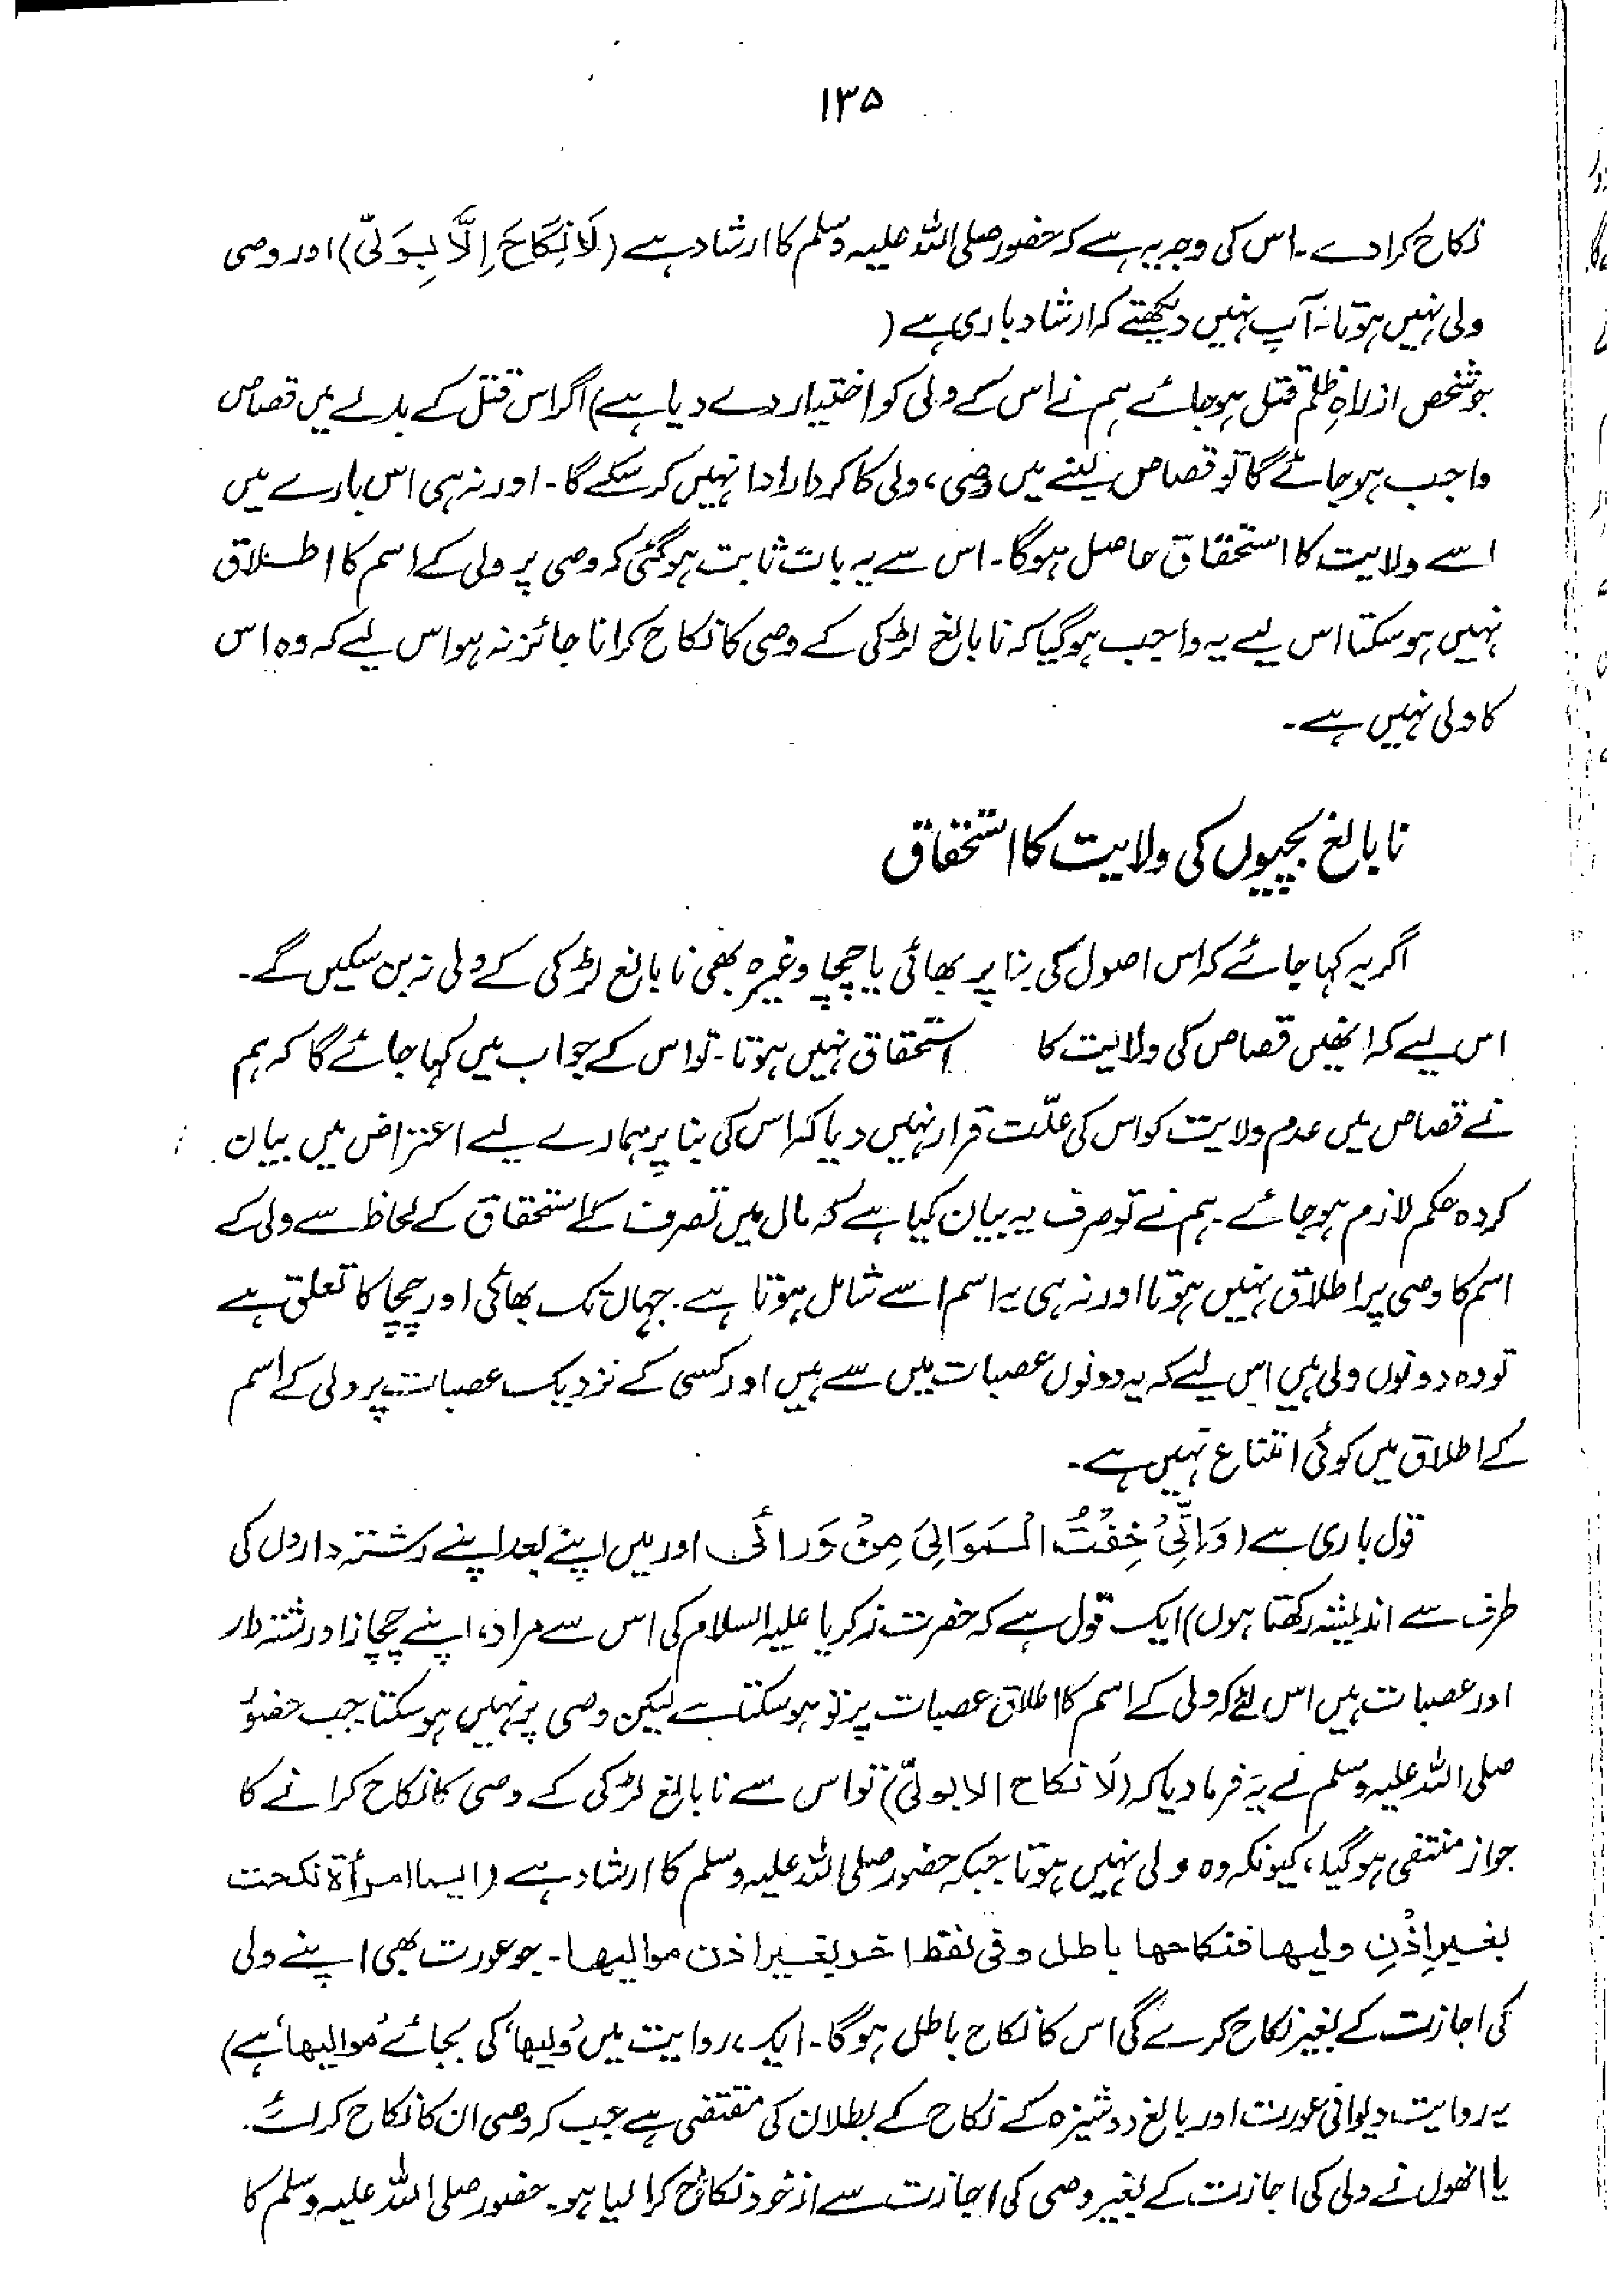 ۱۳۵
نکاح کرا دے۔ اس کی وجہ یہ ہے کہ حضور صلی اللہ علیہ وسلم کا ارشاد ہے (لَا نِکَاحَ إِلَّا بِوَلیّ) اور وصی
ولی نہیں ہوتا۔ آپ نہیں دیکھتے کہ ارشاد باری ہے (
جو شخص از راہِ ظلم قتل ہو جائے ہم نے اس کے ولی کو اختیار دے دیا ہے) اگر اس قتل کے بدلے میں قصاص
واجب ہو جائے گا تو قصاص لینے میں وصی، ولی کا کردار ادا نہیں کر سکے گا۔ اور نہ ہی اس بارے میں
اسے ولایت کا استحقاق حاصل ہوگا۔ اس سے یہ بات ثابت ہو گئی کہ وصی پر ولی کے اسم کا اطلاق
نہیں ہو سکتا اس لیے یہ واجب ہو گیا کہ نا بالغ لڑکی کے وصی کا نکاح کرانا جائز نہ ہو اس لیے کہ وہ اس
کا ولی نہیں ہے۔
نا بالغ بچیوں کی ولایت کا استحقاق
اگر یہ کہا جائے کہ اس اصول کی بنا پر بھائی یا چچا وغیرہ بھی نا بالغ لڑکی کے ولی نہ بن سکیں گے۔
اس لیے کہ انھیں قصاص کی ولایت کا استحقاق نہیں ہوتا۔ تو اس کے جواب میں کہا جائے گا کہ ہم
نے قصاص میں عدم ولایت کو اس کی علّت قرار نہیں دیا کہ اس کی بنا پر ہمارے لیے اعتراض میں بیان
کردہ حکم لازم ہو جائے۔ ہم نے تو صرف یہ بیان کیا ہے کہ مال میں تصرف کے استحقاق کے لحاظ سے ولی کے
اسم کا وصی پر اطلاق نہیں ہوتا اور نہ ہی یہ اسم اسے شامل ہوتا ہے۔ جہاں تک بھائی اور چچا کا تعلق ہے
تو وہ دونوں ولی ہیں اس لیے کہ یہ دونوں عصبات میں سے ہیں اور کسی کے نزدیک عصبات پر ولی کے اسم
کے اطلاق میں کوئی امتناع نہیں ہے۔
قول باری ہے (وَاِنِّیْ خِفْتُ الْمَوَالِیَ مِنْ وَرَائی اور میں اپنے بعد اپنے رشتہ داروں کی
طرف سے اندیشہ رکھتا ہوں) ایک قول ہے کہ حضرت زکریا علیہ السلام کی اس سے مراد، اپنے چچا زاد رشتہ دار
اور عصبات ہیں اس لئے کہ ولی کے اسم کا اطلاق عصبات پر تو ہو سکتا ہے لیکن وصی پر نہیں ہو سکتا جب حضورؐ
صلی اللہ علیہ وسلم نے یہ فرما دیا کہ (لَا نکاح الا بولیّ) تو اس سے نا بالغ لڑکی کے وصی کا نکاح کرانے کا
جواز منتفی ہو گیا، کیونکہ وہ ولی نہیں ہوتا جبکہ حضور صلی اللہ علیہ وسلم کا ارشاد ہے (ایما امرأة نکحت
بغیرِ اِذْنِ ولیھا فنکاحھا باطل وفی لفظ اخر بغیر اذن موالیھا۔ جو عورت بھی اپنے ولی
کی اجازت کے بغیر نکاح کرے گی اس کا نکاح باطل ہوگا۔ ایک روایت میں 'ولیھا' کی بجائے 'موالیھا' ہے)
یہ روایت دیوانی عورت اور بالغ دوشیزہ کے نکاح کے بطلان کی مقتضی ہے جب کہ وصی ان کا نکاح کرائے۔
یا انھوں نے ولی کی اجازت کے بغیر وصی کی اجازت سے از خود نکاح کرا لیا ہو۔ حضور صلی اللہ علیہ وسلم کا